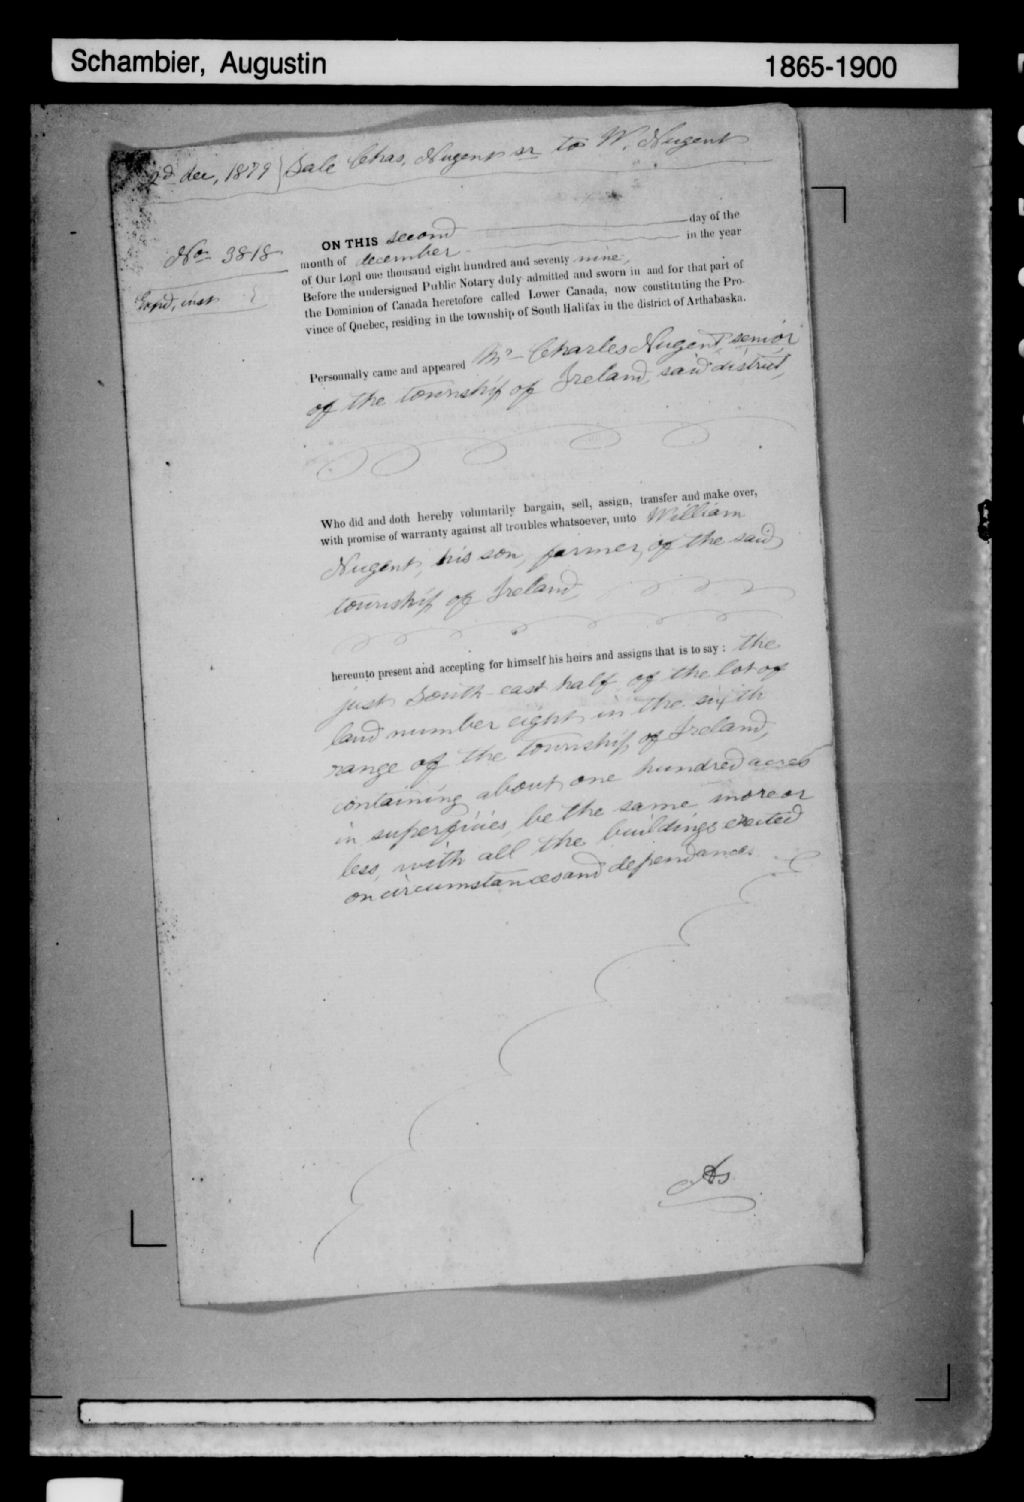 Schambier, Augustin 1865-1900
2d dec, 1879 } Sale Chas, Nugent sr to W. Nugent
No 3818
Exp'd, inst
ON THIS second day of the
month of december in the year
of Our Lord one thousand eight hundred and seventy nine,
Before the undersigned Public Notary duly admitted and sworn in and for that part of
the Dominion of Canada heretofore called Lower Canada, now constituting the Pro-
vince of Quebec, residing in the township of South Halifax in the district of Arthabaska.
Personnally came and appeared Mr Charles Nugent senior
of the township of Ireland, said district,
Who did and doth hereby voluntarily bargain, sell, assign, transfer and make over,
with promise of warranty against all troubles whatsoever, unto William
Nugent, his son, farmer, of the said
township of Ireland,
hereunto present and accepting for himself his heirs and assigns that is to say : the
just South-east half of the lot of
land number eight in the sixth
range of the township of Ireland,
containing about one hundred acres
in superficies, be the same more or
less, with all the buildings erected
on circumstances and dependances
AS